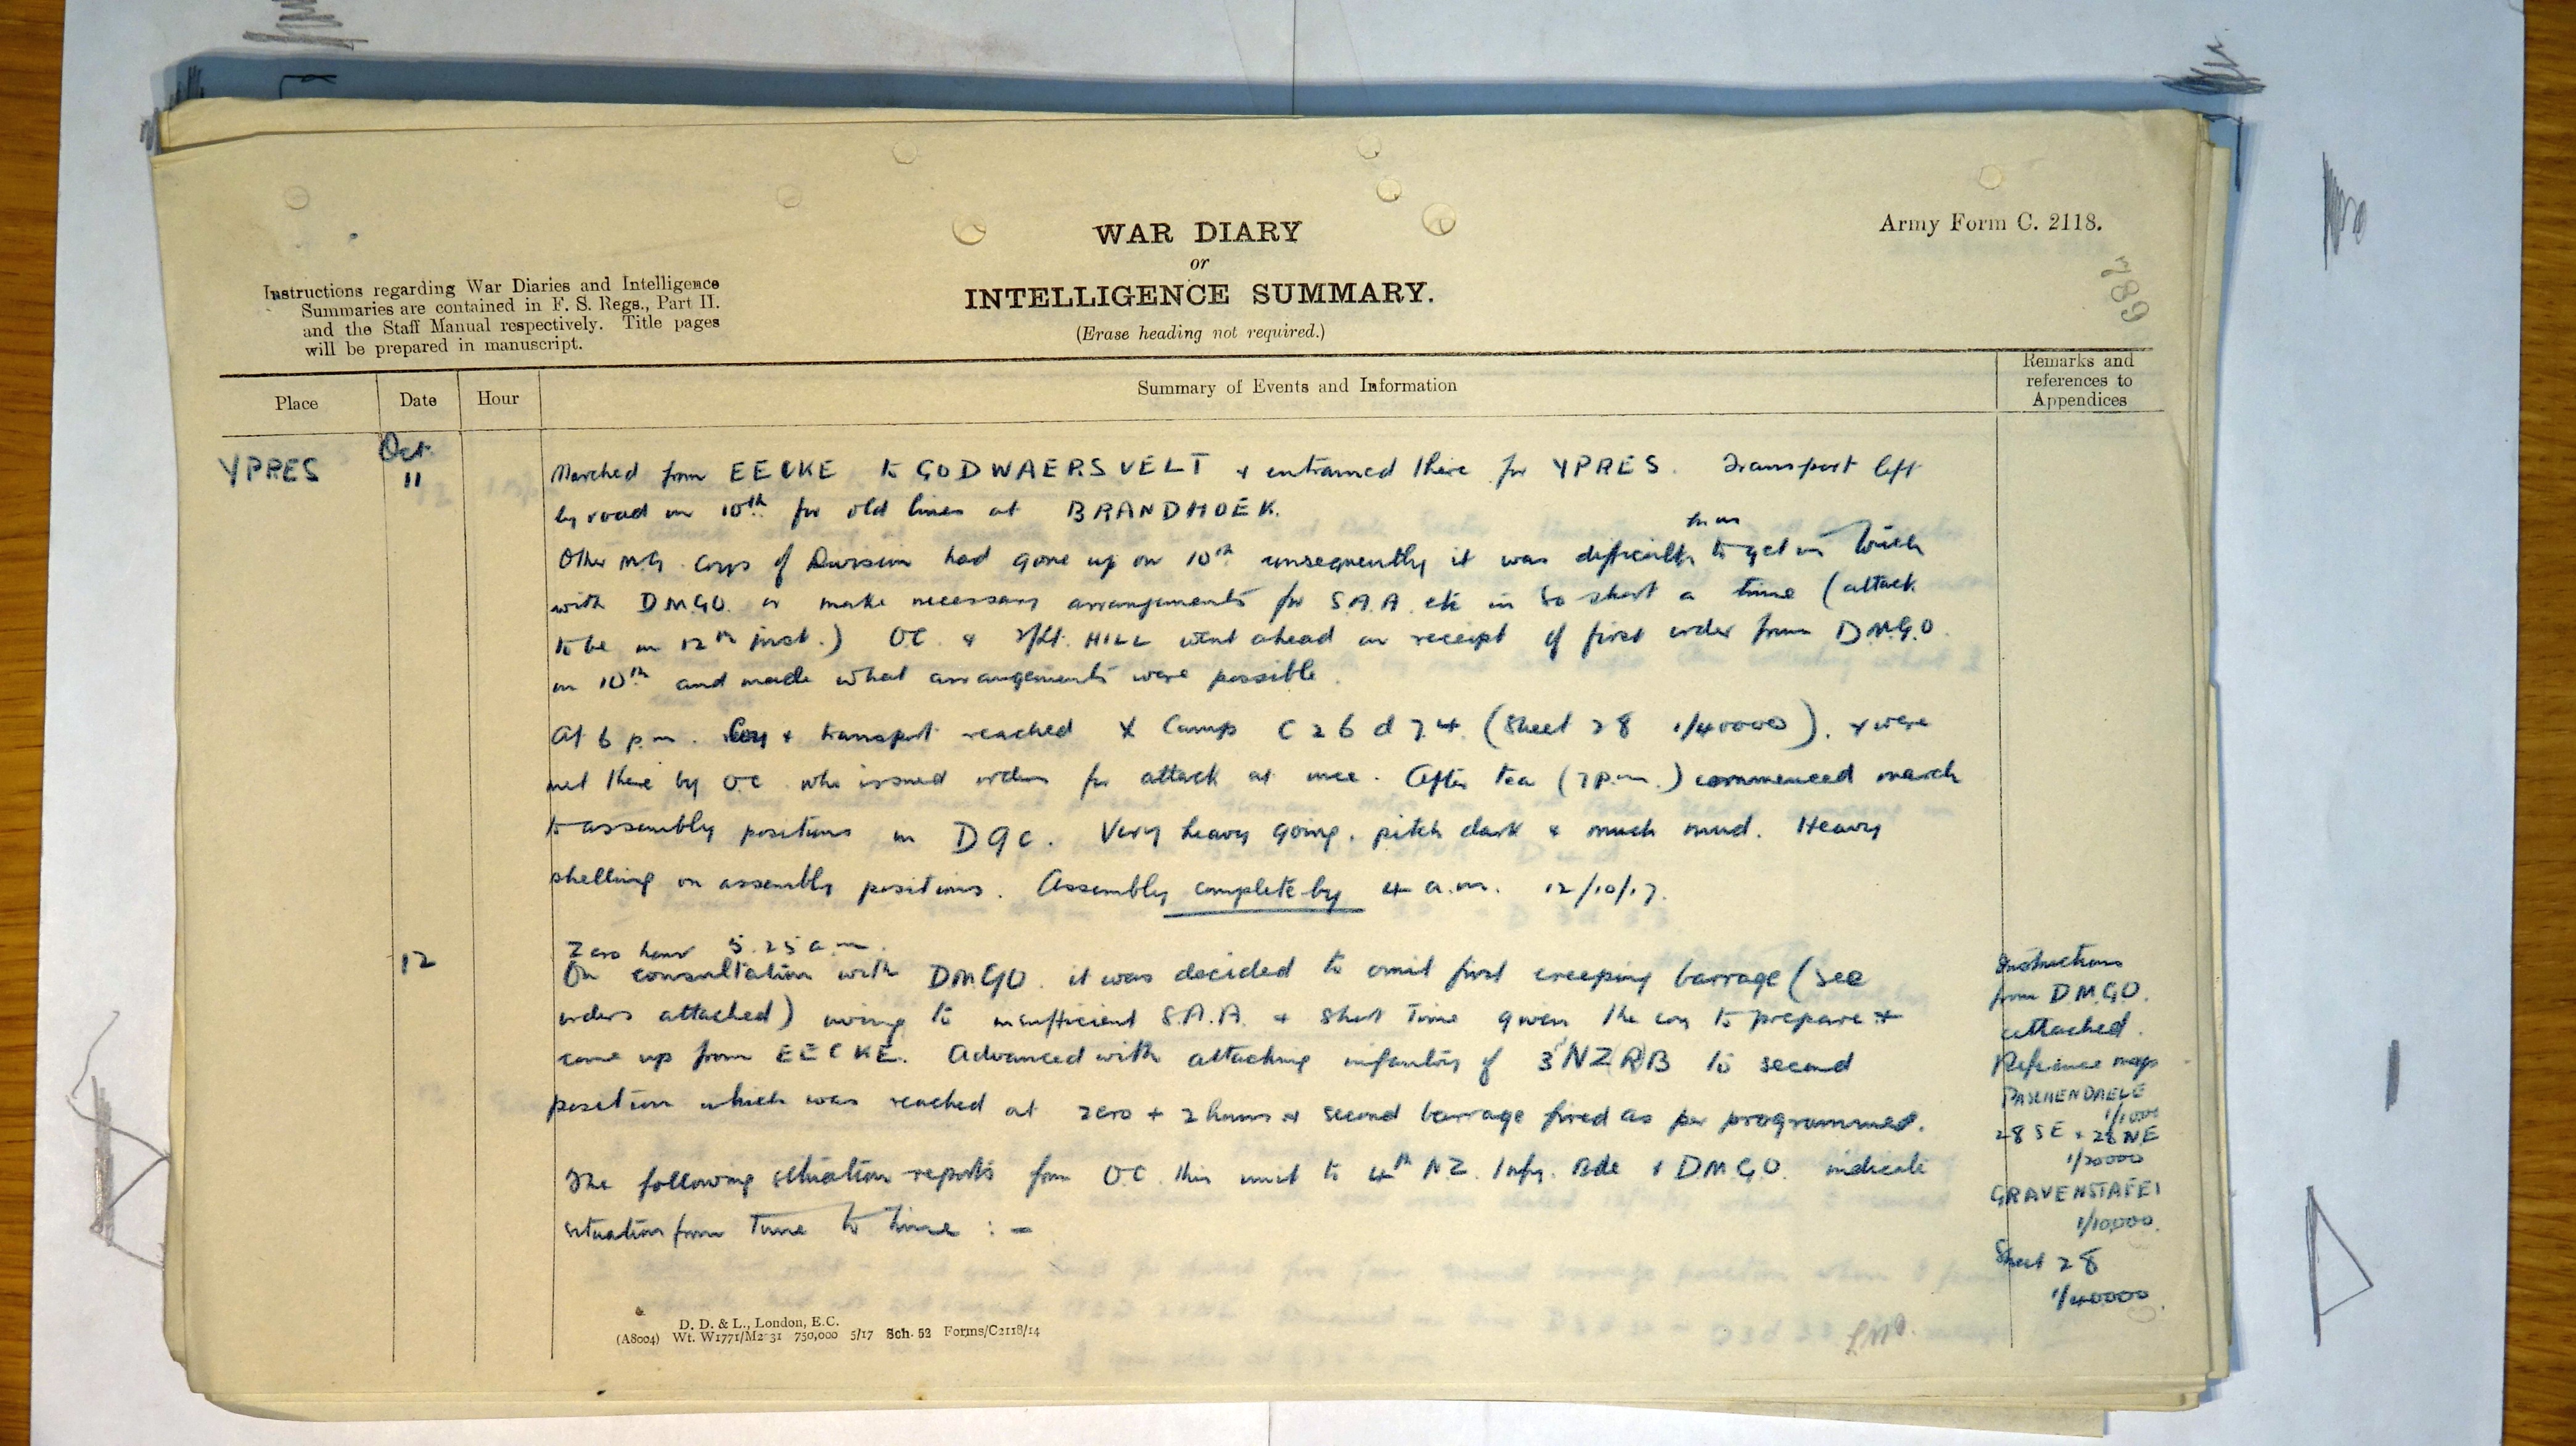 Army Form C. 2118.
789
WAR DIARY
or
INTELLIGENCE SUMMARY.
(Erase heading not required.)
Instructions regarding War Diaries and Intelligence
Summaries are contained in F. S. Regs., Part II.
and the Staff Manual respectively. Title pages
will be prepared in manuscript.
Place
Date
Hour
Summary of Events and Information
Remarks and
references to
Appendices
YPRES
Oct.
11
Marched from EECKE to GODWAERSVELT & entrained there for YPRES. Transport left
by road on 10th for old lines at BRANDHOEK.
Other M.G. Coys of Division had gone up on 10th consequently it was difficult to get in touch
with DMGO. or make necessary arrangements for S.A.A. etc in so short a time (attack
to be on 12th inst.) O.C. & 2/Lt. HILL went ahead on receipt of first order from D.M.G.O.
on 10th and made what arrangements were possible.
At 6 p.m. Coy & transport reached X Camp C 26 d 7.4. (Sheet 28 1/40000). & were
met there by OC who issued orders for attack at once. After tea (7 p.m.) commenced march
to assembly positions in D9c. Very heavy going, pitch dark & much mud. Heavy
shelling on assembly positions. Assembly complete by 4 a.m. 12/10/17.
12
Zero hour 5.25 a.m.
On consultation with DMGO. it was decided to omit first creeping barrage (see
orders attached) owing to insufficient S.A.A. & short time given the coy to prepare &
come up from EECKE. Advanced with attacking infantry of 3 NZ(R)B to second
position which was reached at zero + 2 hours & second barrage fired as per programme.
The following situation reports from O.C. this unit to 4th N.Z. Infy. Bde & DMGO. indicate
situation from time to time : -
Instructions
from D.M.G.O.
attached.
Reference maps
PASCHENDAELE
28 SE & 28 NE
1/20000
GRAVENSTAFEL
1/10,000.
Sheet 28
1/40000.
D. D. & L., London, E.C.
(A8004) Wt. W1771/M2 31 750,000 5/17 Sch. 52 Forms/C2118/14